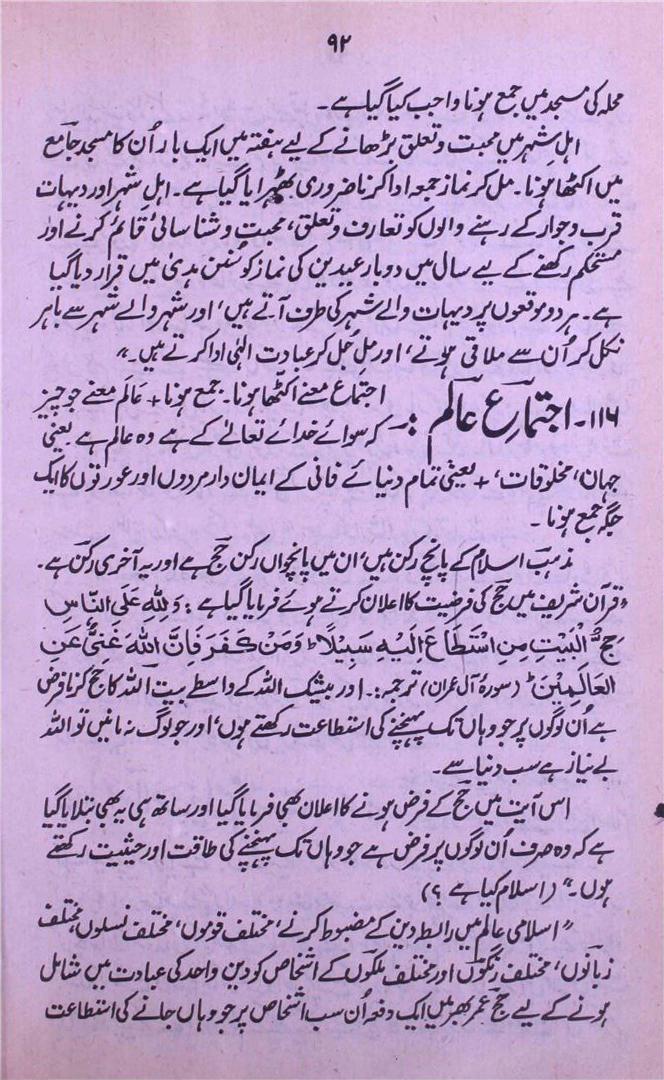 ۹۲
محلہ کی مسجد میں جمع ہونا واجب کیا گیا ہے۔
اہل شہر میں محبت و تعلق بڑھانے کے لیے ہفتہ میں ایک بار اُن کا مسجد جامع
میں اکٹھا ہونا۔ مل کر نماز جمعہ ادا کرنا ضروری ٹھہرایا گیا ہے۔ اہل شہر اور دیہات
قرب و جوار کے رہنے والوں کو تعارف و تعلق، محبت و شناسائی قائم کرنے اور
مستحکم رکھنے کے لیے سال میں دو بار عیدین کی نماز کو سُنن ہدیٰ میں قرار دیا گیا
ہے۔ ہر دو موقعوں پر دیہات والے شہر کی طرف آتے ہیں، اور شہر والے شہر سے باہر
نکل کر اُن سے ملاقی ہوتے، اور مِل جُل کر عبادت الٰہی ادا کرتے ہیں۔"
۱۱۶۔ اجتماعِ عالَم :۔ اجتماع معنے اکٹھا ہونا۔ جمع ہونا + عَالم معنے جو چیز
کہ سوائے خدائے تعالےٰ کے ہے وہ عالم ہے یعنی
جہان، مخلوقات، + یعنی تمام دنیائے فانی کے ایمان دار مردوں اور عورتوں کا ایک
جگہ جمع ہونا۔
مذہب اسلام کے پانچ رکن ہیں، ان میں پانچواں رکن حج ہے اور یہ آخری رکن ہے۔
قرآن شریف میں حج کی فرضیت کا اعلان کرتے ہوئے فرمایا گیا ہے : وَلِلّٰهِ عَلَى النَّاسِ
حِجُّ الْبَيْتِ مِنِ اسْتَطَاعَ اِلَيْهِ سَبِيْلًا ؕ وَمَنْ كَفَرَ فَاِنَّ اللّٰهَ غَنِيٌّ عَنِ
الْعَالَمِيْنَ ؕ (سورۂ آل عمران) ترجمہ :۔ اور بیشک اللہ کے واسطے بیت اللہ کا حج کرنا فرض
ہے اُن لوگوں پر جو وہاں تک پہنچنے کی استطاعت رکھتے ہوں، اور جو لوگ نہ مانیں تو اللہ
بے نیاز ہے سب دنیا سے۔
اس آیت میں حج کے فرض ہونے کا اعلان بھی فرمایا گیا اور ساتھ ہی یہ بھی بتلایا گیا
ہے کہ وہ صرف اُن لوگوں پر فرض ہے جو وہاں تک پہنچنے کی طاقت اور حیثیت رکھتے
ہوں۔" (اسلام کیا ہے ؟)
"اسلامی عالم میں رابطہ دین کے مضبوط کرنے، مختلف قوموں، مختلف نسلوں، مختلف
زبانوں، مختلف رنگوں اور مختلف ملکوں کے اشخاص کو دین واحد کی عبادت میں شامل
ہونے کے لیے حج عمر بھر میں ایک دفعہ اُن سب اشخاص پر جو وہاں جانے کی استطاعت